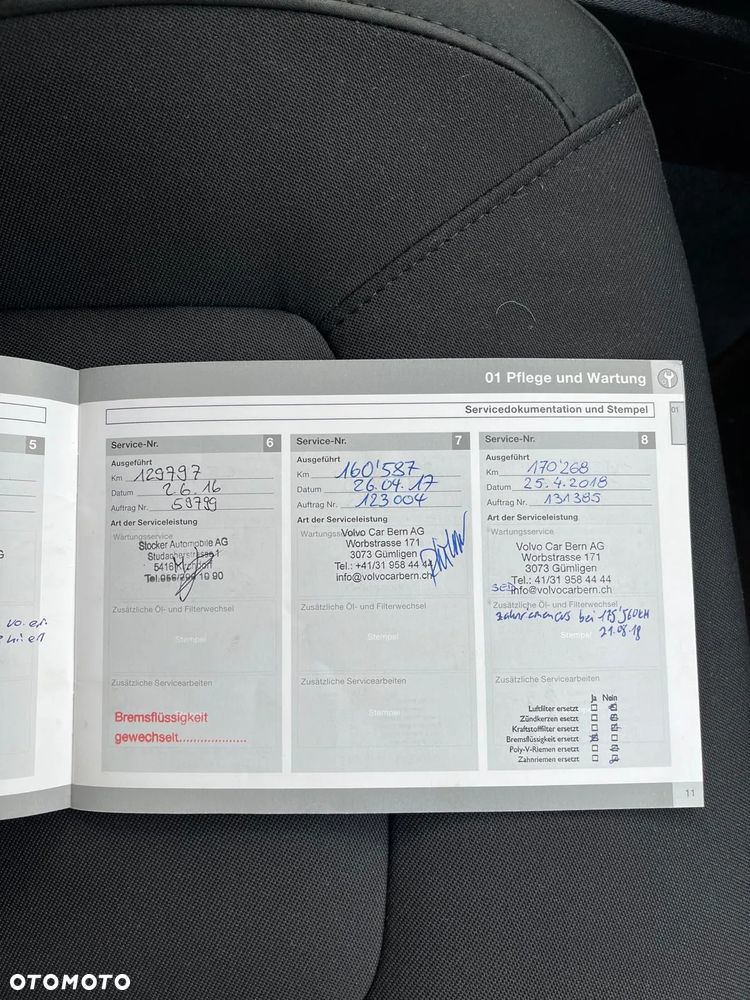 01 Pflege und Wartung
Servicedokumentation und Stempel
01
5
vo.er
Service-Nr. 6
Ausgeführt
Km 129797
Datum 2.6.16
Auftrag Nr. 59799
Art der Serviceleistung
Wartungsservice
Stocker Automobile AG
Studacherstrasse 1
5416 Kirchdorf
Tel. 056/290 10 90
Zusätzliche Öl- und Filterwechsel
Stempel
Zusätzliche Servicearbeiten
Bremsflüssigkeit
gewechselt....................
Service-Nr. 7
Ausgeführt
Km 160'587
Datum 26.04.17
Auftrag Nr. 123004
Art der Serviceleistung
Volvo Car Bern AG
Worbstrasse 171
3073 Gümligen
Tel.: +41/31 958 44 44
info@volvocarbern.ch
Zusätzliche Öl- und Filterwechsel
Zusätzliche Servicearbeiten
Stempel
Service-Nr. 8
Ausgeführt
Km 170'268
Datum 25.4.2018
Auftrag Nr. 131385
Art der Serviceleistung
Wartungsservice
Volvo Car Bern AG
Worbstrasse 171
3073 Gümligen
Tel.: 41/31 958 44 44
info@volvocarbern.ch
Zusätzliche Öl- und Filterwechsel
bei 175'560km
Stempel
21.08.18
Ja Nein
Luftfilter ersetzt
Zündkerzen ersetzt
Kraftstoffilter ersetzt
Bremsflüssigkeit ersetzt
Poly-V-Riemen ersetzt
Zahnriemen ersetzt
11
OTOMOTO